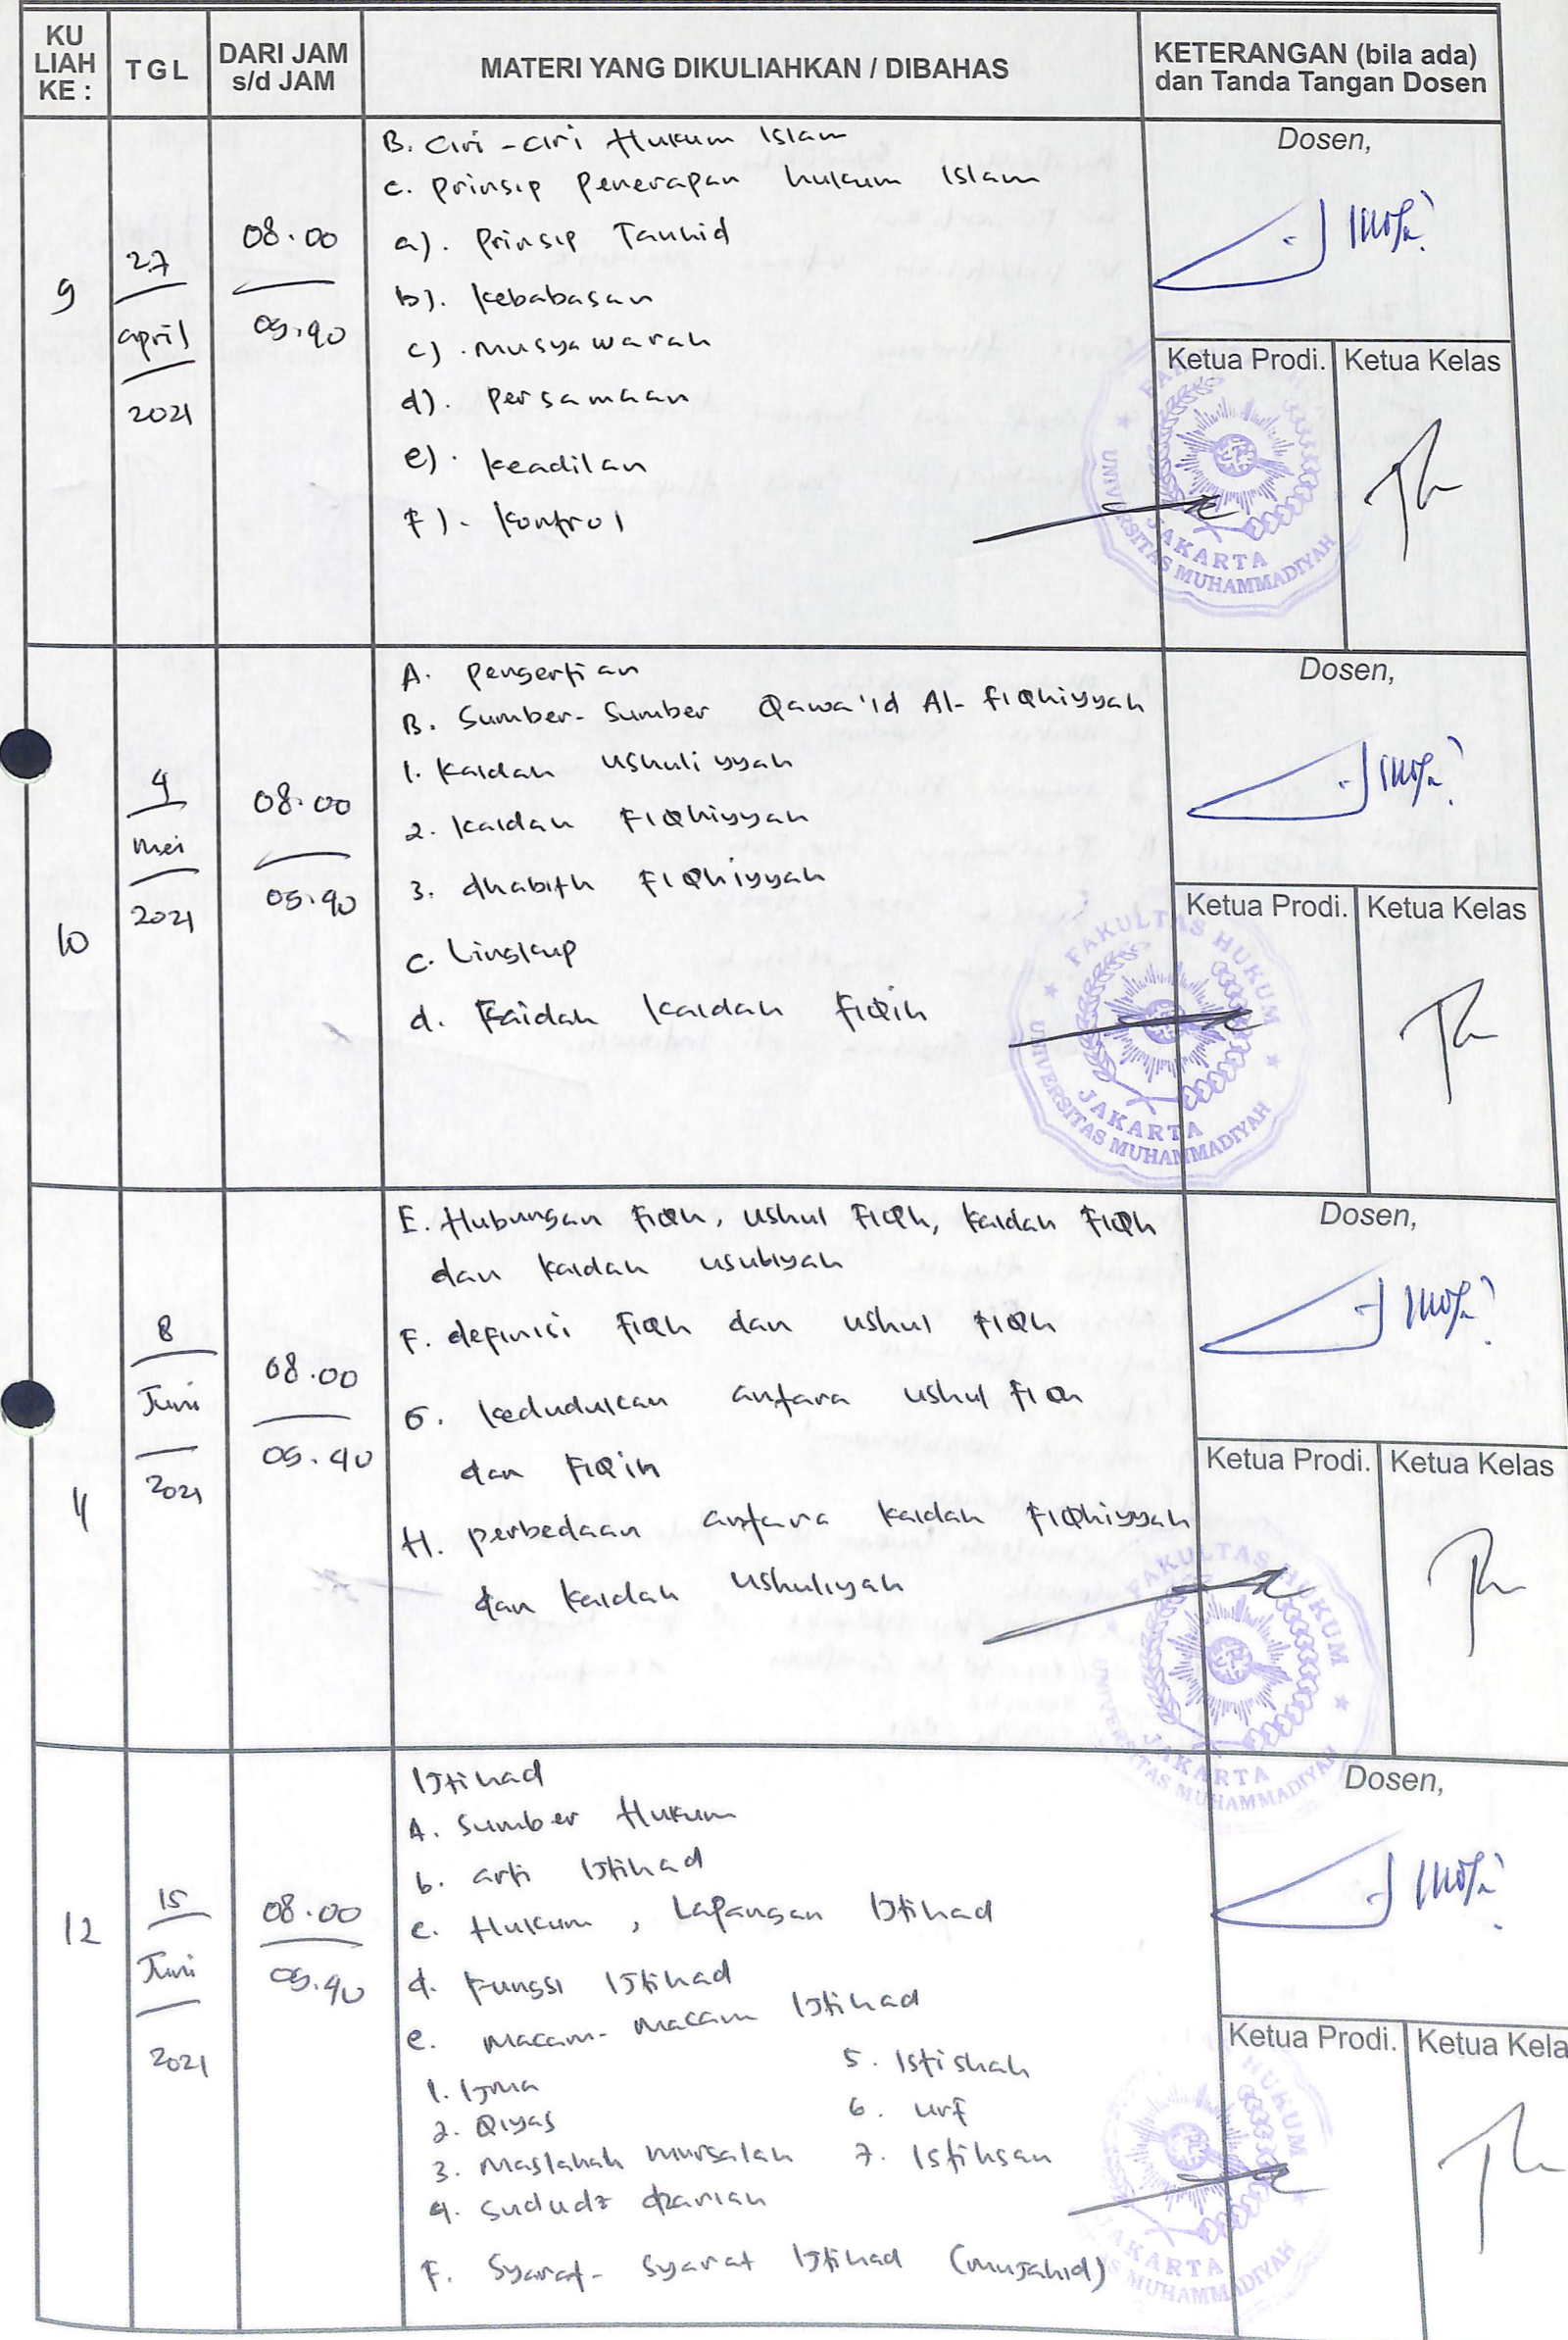 KU LIAH KE :
TGL
DARI JAM s/d JAM
MATERI YANG DIKULIAHKAN / DIBAHAS
KETERANGAN (bila ada) dan Tanda Tangan Dosen
9
27
april
2021
08.00
09.40
B. Ciri-ciri Hukum Islam
C. Prinsip Penerapan hukum Islam
a). Prinsip Tauhid
b). Kebabasan
c). Musyawarah
d). Persamaan
e). Keadilan
F). Kontrol
Dosen,
Ketua Prodi.
Ketua Kelas
JAKARTA
UNIVERSITAS MUHAMMADIYAH
10
4
mei
2021
08.00
09.40
A. Pengertian
B. Sumber-Sumber Qawa'id Al-fiqhiyyah
1. Kaidah ushuliyyah
2. Kaidah Fiqhiyyah
3. dhabith Fiqhiyyah
C. Lingkup
d. Faidah Kaidah Fiqih
Dosen,
Ketua Prodi.
Ketua Kelas
FAKULTAS HUKUM
JAKARTA
UNIVERSITAS MUHAMMADIYAH
11
8
Juni
2021
08.00
09.40
E. Hubungan Fiqh, ushul Fiqh, Kaidah Fiqh
dan Kaidah usuliyah
F. definisi Fiqh dan ushul Fiqh
G. Kedudukan antara ushul Fiqh
dan Fiqih
H. perbedaan antara Kaidah Fiqhiyyah
dan Kaidah Ushuliyah
Dosen,
Ketua Prodi.
Ketua Kelas
FAKULTAS HUKUM
JAKARTA
UNIVERSITAS MUHAMMADIYAH
12
15
Juni
2021
08.00
09.40
Ijtihad
A. Sumber Hukum
b. arti Ijtihad
c. Hukum, Lapangan Ijtihad
d. Fungsi Ijtihad
e. Macam-Macam Ijtihad
1. Ijma
2. Qiyas
3. Maslahah mursalah
4. Sududz dzariah
5. Istishah
6. Urf
7. Istihsan
F. Syarat-Syarat Ijtihad (mujahid)
Dosen,
Ketua Prodi.
Ketua Kela
HUKUM
JAKARTA
MUHAMMADIYAH